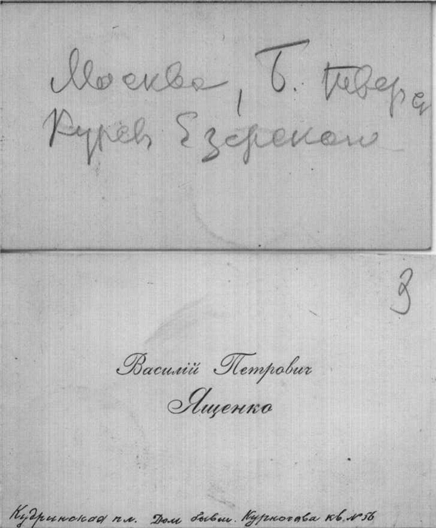 Москва, Б. Тверс
Курсы Езерского
3
Василій Петрович
Ященко
Кудринская пл. Дом бывш. Курносова кв. № 56